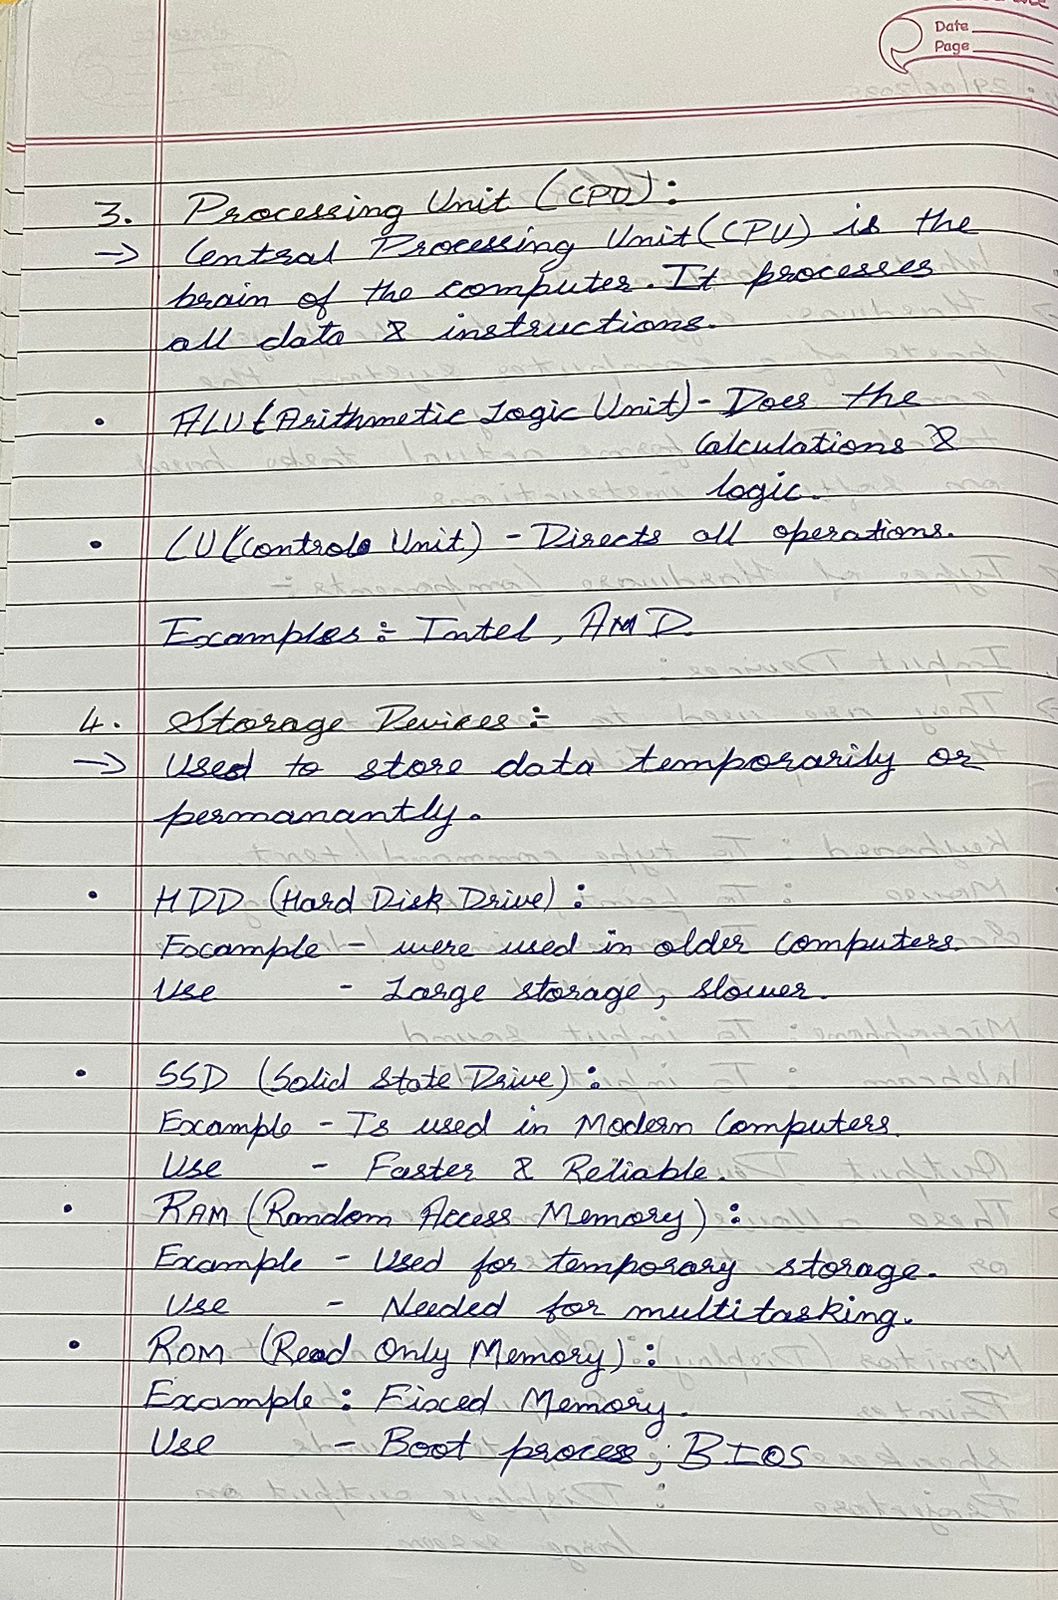 Date
Page
3. Processing Unit (CPU):
→ Central Processing Unit (CPU) is the
brain of the computer. It processes
all data & instructions.
• ALU (Arithmetic Logic Unit) - Does the
Calculations &
logic.
• CU (Control Unit) - Directs all operations.
Examples:- Intel, AMD.
4. Storage Devices:-
→ Used to store data temporarily or
permanantly.
• HDD (Hard Disk Drive):
Example - were used in older Computers.
Use - Large storage, slower.
• SSD (Solid State Drive):
Example - Is used in Modern Computers.
Use - Faster & Reliable.
• RAM (Random Access Memory):
Example - Used for temporary storage.
Use - Needed for multitasking.
• ROM (Read Only Memory):
Example: Fixed Memory.
Use - Boot process, BIOS